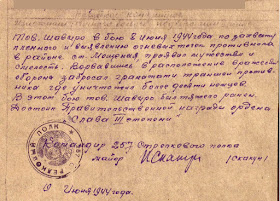 Тов. Шавиро в бою 8 июня 1944 года по захвату
пленного и выявлению огневых точек противника
в районе ст. Мошная проявил мужество и
смелость. Ворвавшись в расположение вражеской
обороны забросал гранатами траншеи против-
ника где уничтожил более десяти немцев.
В этом бою тов. Шавиро был тяжело ранен.
Достоин Правительственной награды ордена
"Слава III степени"
Командир 257 Стрелкового полка
майор (Скляр)
9 Июня 1944 года.